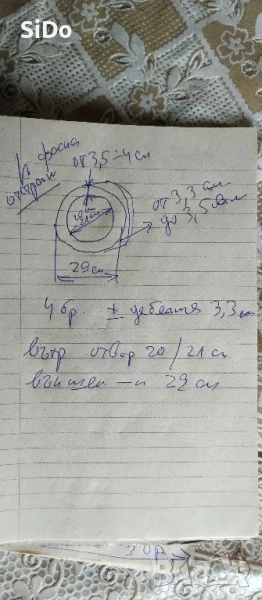 SiDo
с фаска
отстрани
от 3,5 - 4 см
20 см
21 см
от 3,3 см
до 3,5 см
29 см
4 бр. ± дебелина 3,3 см
вътр отвор 20/21 см
външен —"— 29 см